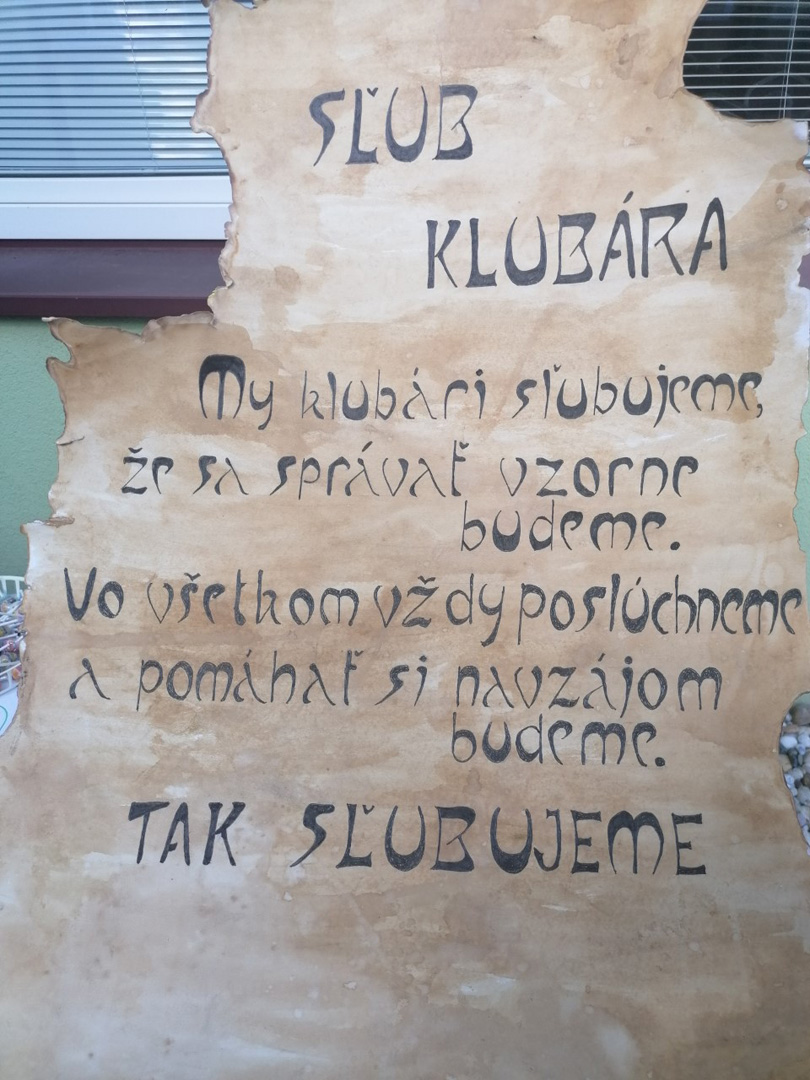 SĽUB
KLUBÁRA
My klubári sľubujeme,
že sa správať vzorne
budeme.
Vo všetkom vždy poslúchneme
a pomáhať si navzájom
budeme.
TAK SĽUBUJEME